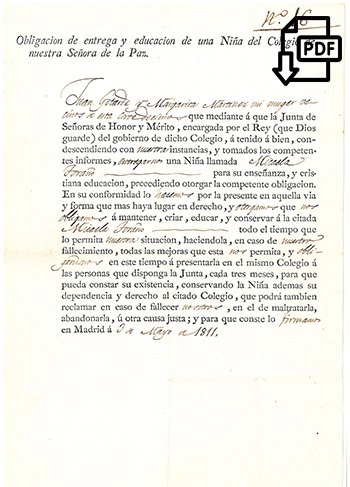 nº 16
PDF
Obligacion de entrega y educacion de una Niña del Colegio
nuestra Señora de la Paz.
Juan y Margarita Martinez mi muger ve-
cinos de esta que mediante á que la Junta de
Señoras de Honor y Mérito, encargada por el Rey (que Dios
guarde) del gobierno de dicho Colegio, á tenido á bien, con-
descendiendo con nuestra instancias, y tomados los competen-
tes informes, entregarnos una Niña llamada Micaela
para su enseñanza, y cris-
tiana educacion, precediendo otorgar la competente obligacion.
En su conformidad lo hacemos por la presente en aquella via
y forma que mas haya lugar en derecho, y otorgamos que nos
obligamos á mantener, criar, educar, y conservar á la citada
Micaela todo el tiempo que
lo permita nuestra situacion, haciendola, en caso de nuestro
fallecimiento, todas las mejoras que esta nos permita, y obli-
gandonos en este tiempo á presentarla en el mismo Colegio á
las personas que disponga la Junta, cada tres meses, para que
pueda constar su existencia, conservando la Niña ademas su
dependencia y derecho al citado Colegio, que podrá tambien
reclamar en caso de fallecer nosotros, en el de maltratarla,
abandonarla, ú otra causa justa; y para que conste lo firmamos
en Madrid á 3 de Mayo de 1811.